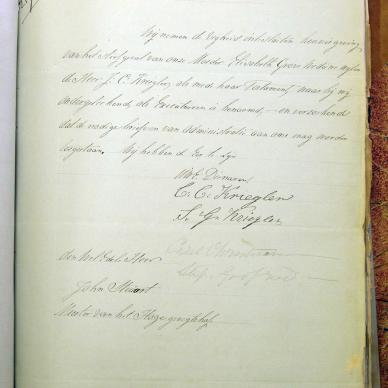 Wij nemen de vryheid intesluiten kennisgeving
van het Sterfgeval van onze Moeder Elizabeth Geers Weduwe wylen
de Heer J. C. Kriegler, als mede haar Testament waar bij wij
ondergetekende, als Executeuren is benoemd, en verzoekende
dat de nodige brieven van Administratie aan ons mag worden
toegestaan. Wy hebben de Eer te zyn
UWE. Dienaren
C. C. Kriegler
J. G. Kriegler
den Wel Edele Heer
John Steuart
Meester van het Hooge geregtshof